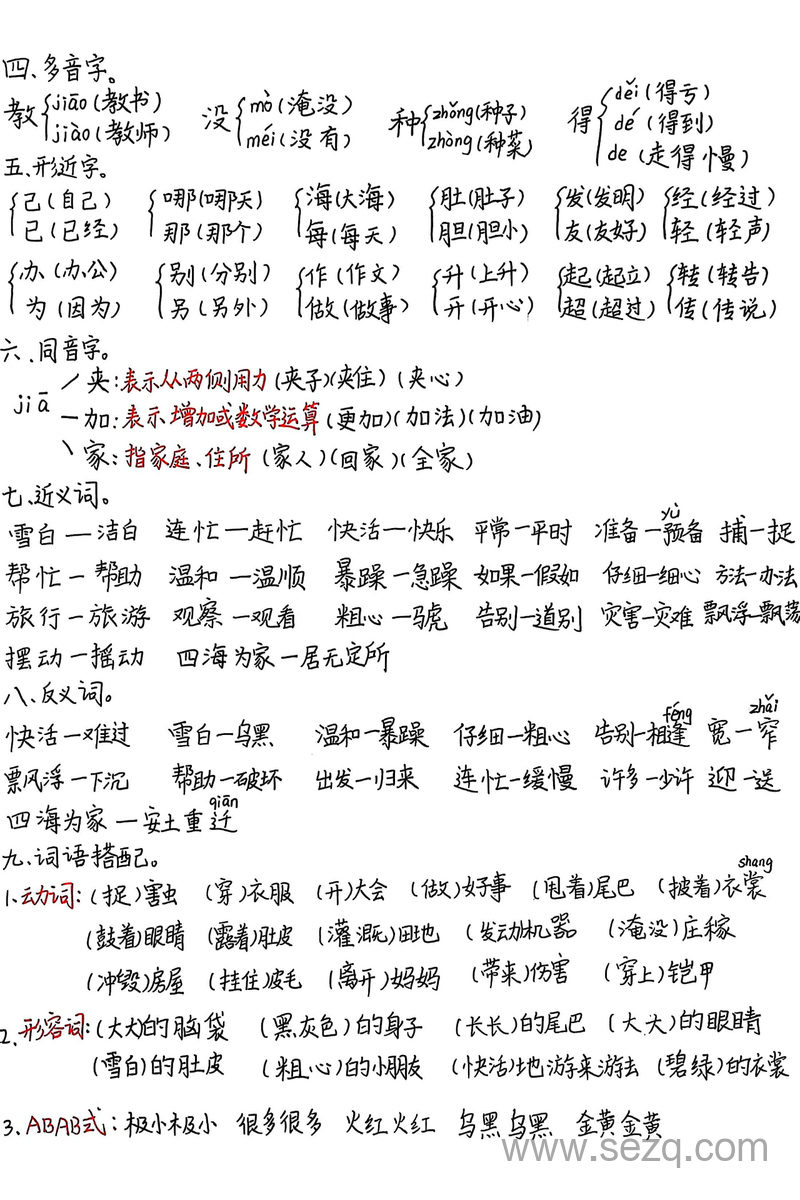 四、多音字。
教 jiāo(教书) 没 mò(淹没) 种 zhǒng(种子) 得 děi(得亏)
jiào(教师) méi(没有) zhòng(种菜) dé(得到)
de(走得慢)
五、形近字。
己(自己) 哪(哪天) 海(大海) 肚(肚子) 发(发明) 经(经过)
已(已经) 那(那个) 每(每天) 胆(胆小) 友(友好) 轻(轻声)
办(办公) 别(分别) 作(作文) 升(上升) 起(起立) 转(转告)
为(因为) 另(另外) 做(做事) 开(开心) 超(超过) 传(传说)
六、同音字。
jiā 夹:表示从两侧用力(夹子)(夹住)(夹心)
加:表示增加或数学运算(更加)(加法)(加油)
家:指家庭、住所(家人)(回家)(全家)
七、近义词。
yù
雪白—洁白 连忙—赶忙 快活—快乐 平常—平时 准备—预备 捕—捉
帮忙—帮助 温和—温顺 暴躁—急躁 如果—假如 仔细—细心 方法—办法
旅行—旅游 观察—观看 粗心—马虎 告别—道别 灾害—灾难 飘浮—飘荡
摆动—摇动 四海为家—居无定所
八、反义词。
féng zhǎi
快活—难过 雪白—乌黑 温和—暴躁 仔细—粗心 告别—相逢 宽—窄
飘浮—下沉 帮助—破坏 出发—归来 连忙—缓慢 许多—少许 迎—送
qiān
四海为家—安土重迁
九、词语搭配。
shang
1.动词:(捉)害虫 (穿)衣服 (开)大会 (做)好事 (甩着)尾巴 (披着)衣裳
(鼓着)眼睛 (露着)肚皮 (灌溉)田地 (发动)机器 (淹没)庄稼
(冲毁)房屋 (挂住)皮毛 (离开)妈妈 (带来)伤害 (穿上)铠甲
2.形容词:(大大)的脑袋 (黑灰色)的身子 (长长)的尾巴 (大大)的眼睛
(雪白)的肚皮 (粗心)的小朋友 (快活)地游来游去 (碧绿)的衣裳
3.ABAB式:极小极小 很多很多 火红火红 乌黑乌黑 金黄金黄
www.sezq.com